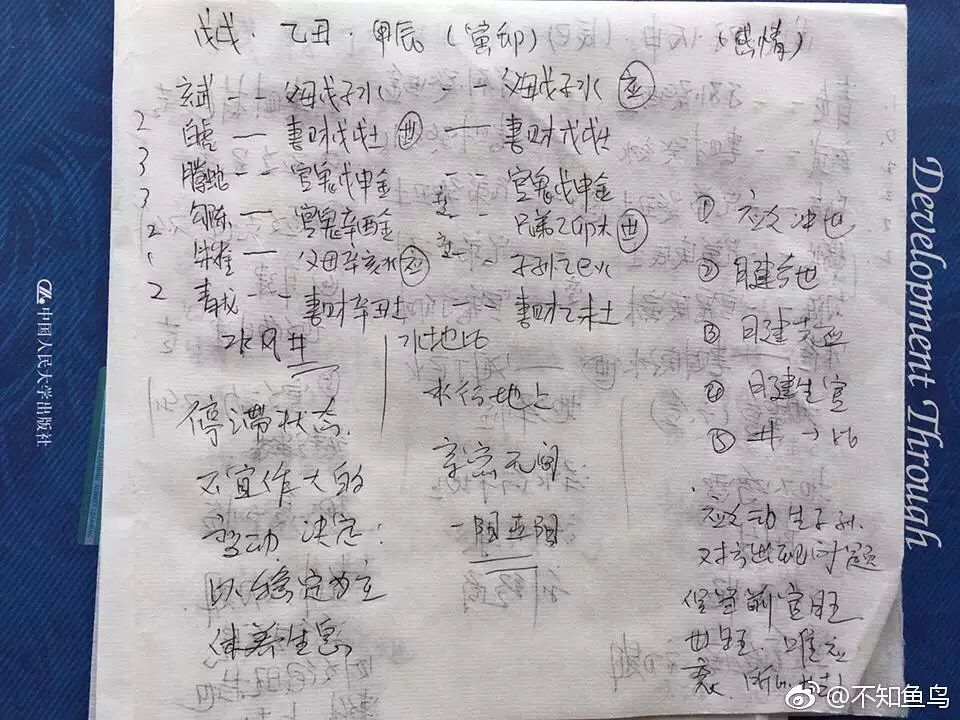 戊戌·乙丑·甲辰（寅卯） （感情）
玄武 -- 父母戊子水 -- 父母戊子水 应
2 白虎 — 妻财戊戌土 世 — 妻财戊戌土
3 腾蛇 -- 官鬼戊申金 -- 官鬼戊申金
3 勾陈 — 官鬼辛酉金 -- 兄弟乙卯木 世
2 朱雀 — 父母辛亥水 应 -- 子孙乙巳火
青龙 -- 妻财辛丑土 -- 妻财乙未土
水风井 水地比
停滞状态
不宜作大的
变动 决定:
以稳定为主
休养生息
水行地上
亲密无间
① 应爻冲世
② 日建合世
③ 月建克应
④ 月建生官
⑤ 井→比
应爻动生子孙.
对方出现问题
官旺
世旺. 唯应
衰.
中国人民大学出版社
Development Through
@不知鱼鸟